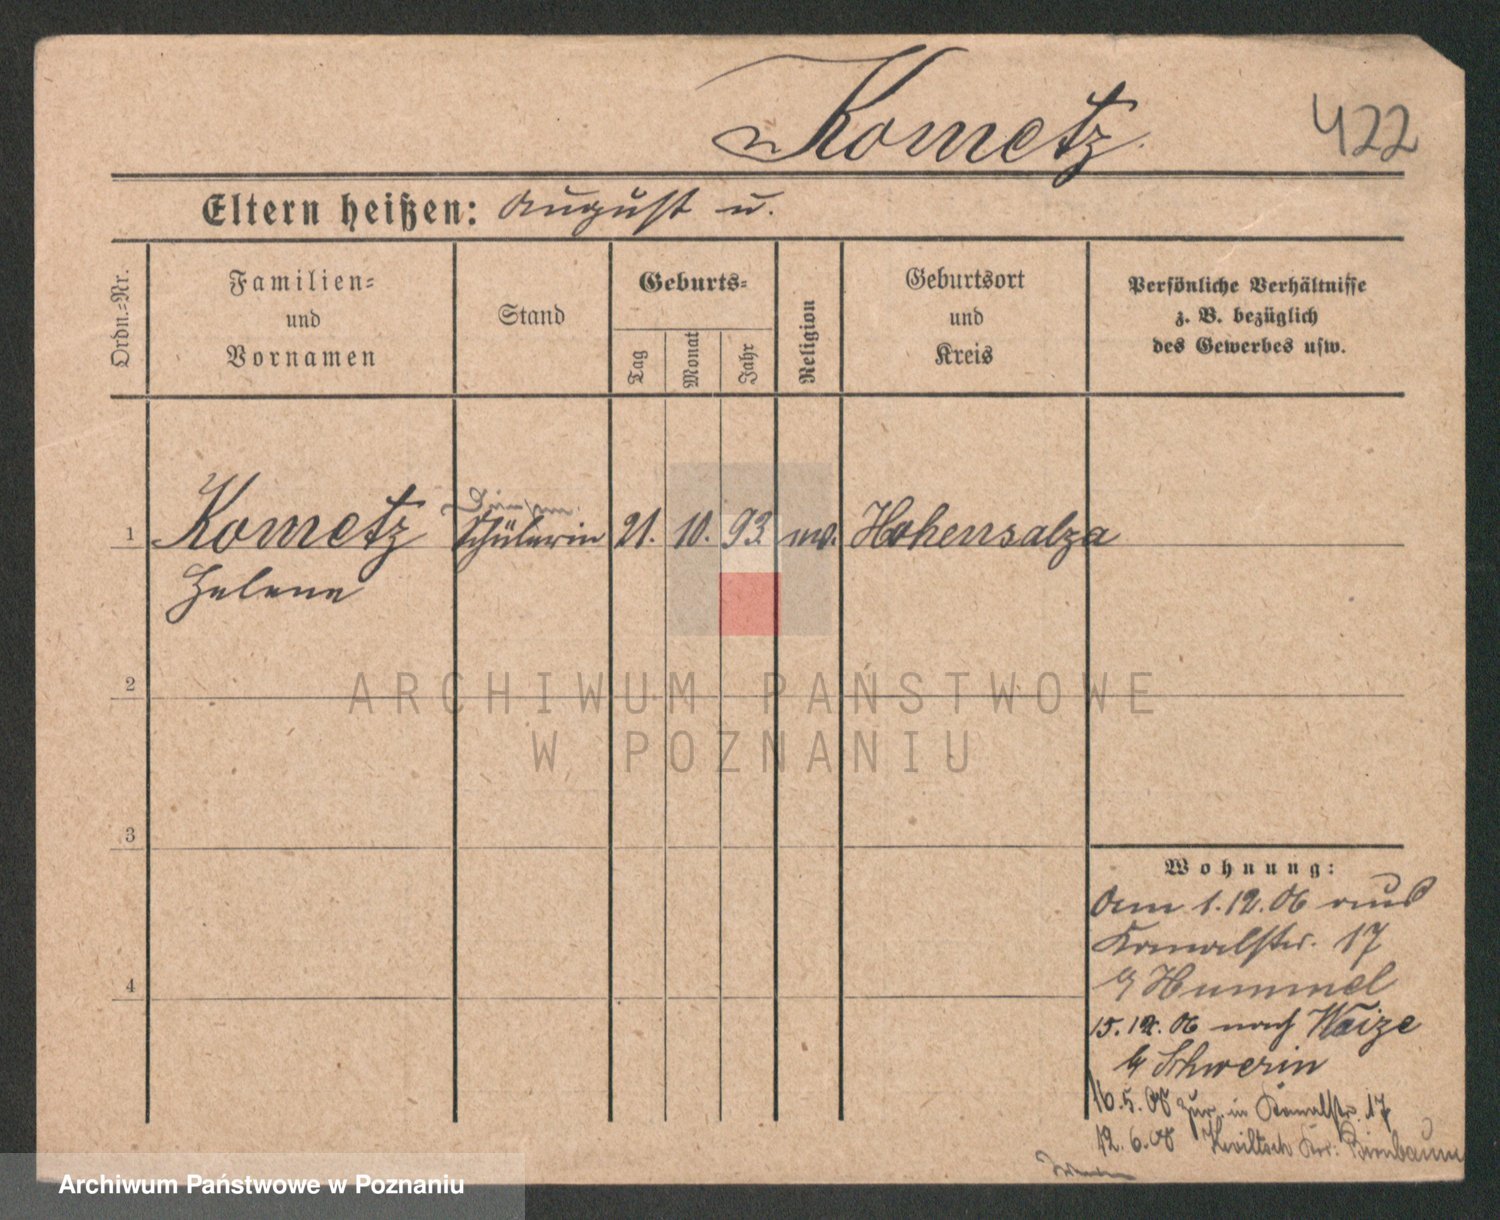 Kometz.
422
Eltern heißen: August u.
Ordn.-Nr.
Familien-
und
Vornamen
Stand
Geburts-
Tag
Monat
Jahr
Religion
Geburtsort
und
Kreis
Persönliche Verhältnisse
z. B. bezüglich
des Gewerbes usw.
1
Kometz
Schülerin
21. 10. 93
Hohensalza
Helene
2
ARCHIWUM PAŃSTWOWE
W POZNANIU
3
4
Wohnung:
Am 1.12.06 aus
Kanalstr. 17
b/ Hummel
15.12.06 nach Waize
b/ Schwerin
16.5.08 zur. in Kanalstr. 17
12.6.08 Kwiltsch Kr. Birnbaum
Archiwum Państwowe w Poznaniu